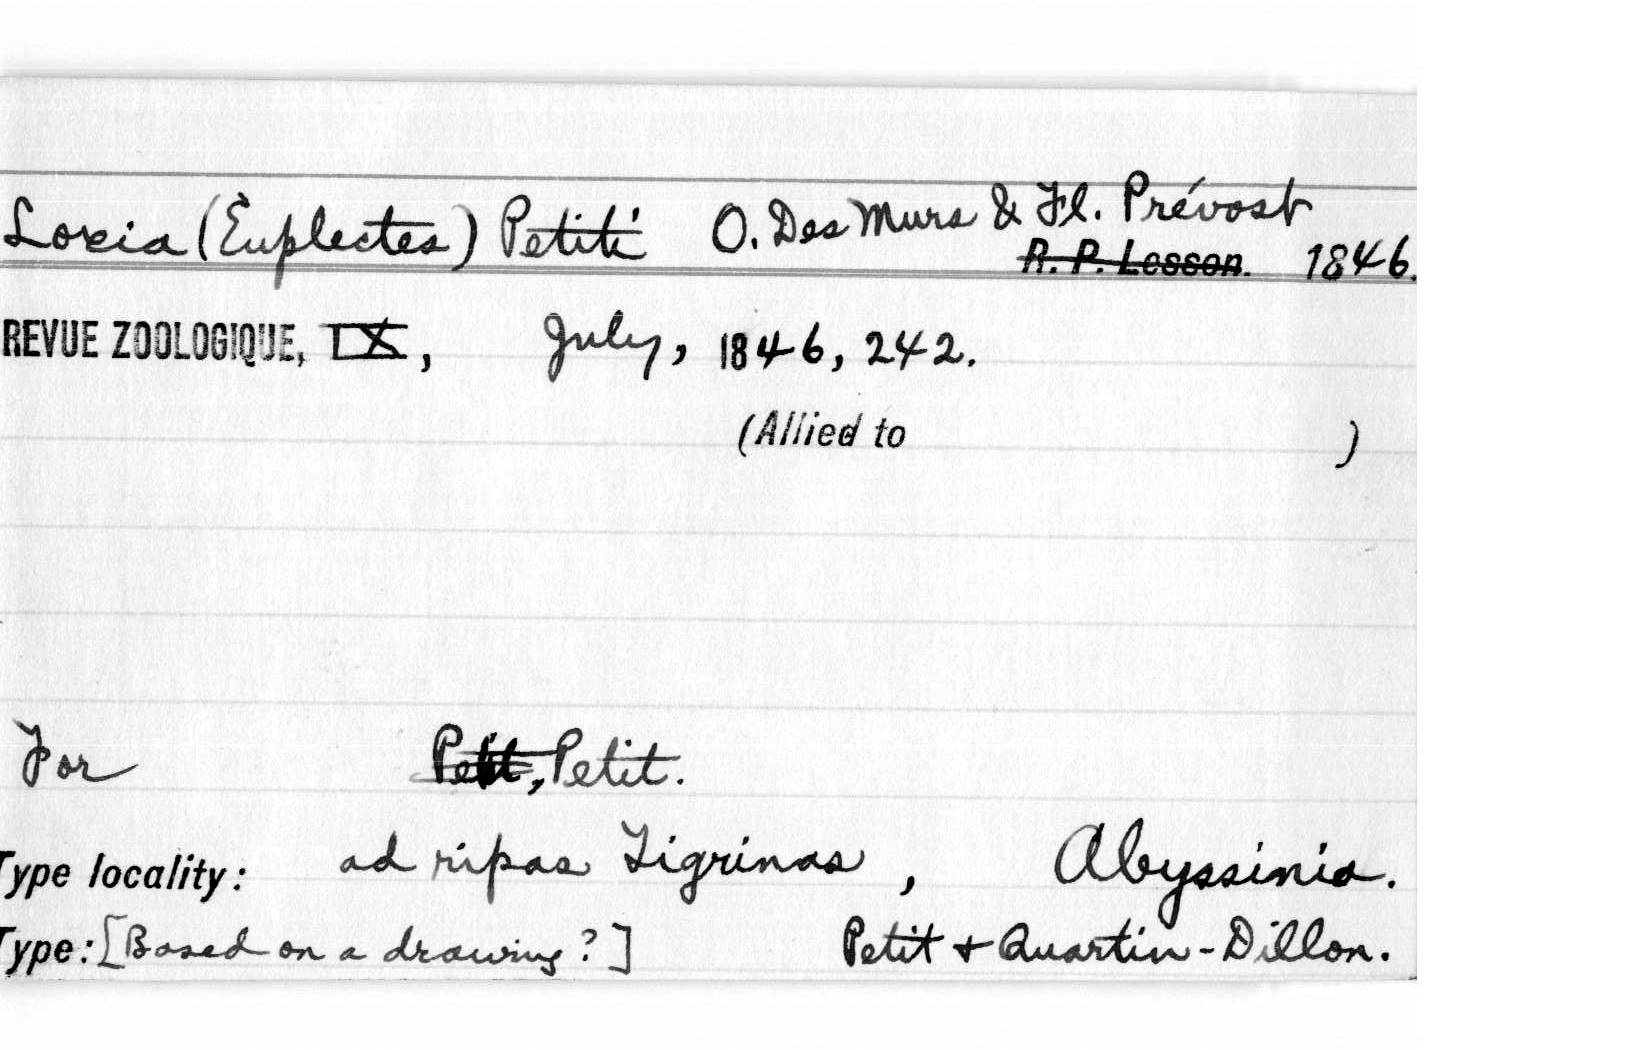 Loxia (Euplectes) Petiti O. Des Murs & Fl. Prévost
R. P. Lesson. 1846.
REVUE ZOOLOGIQUE, IX, July, 1846, 242.
(Allied to )
For Petit, Petit.
Type locality: ad ripas Tigrinas, Abyssinia.
Type: [Based on a drawing?] Petit + Quartin-Dillon.